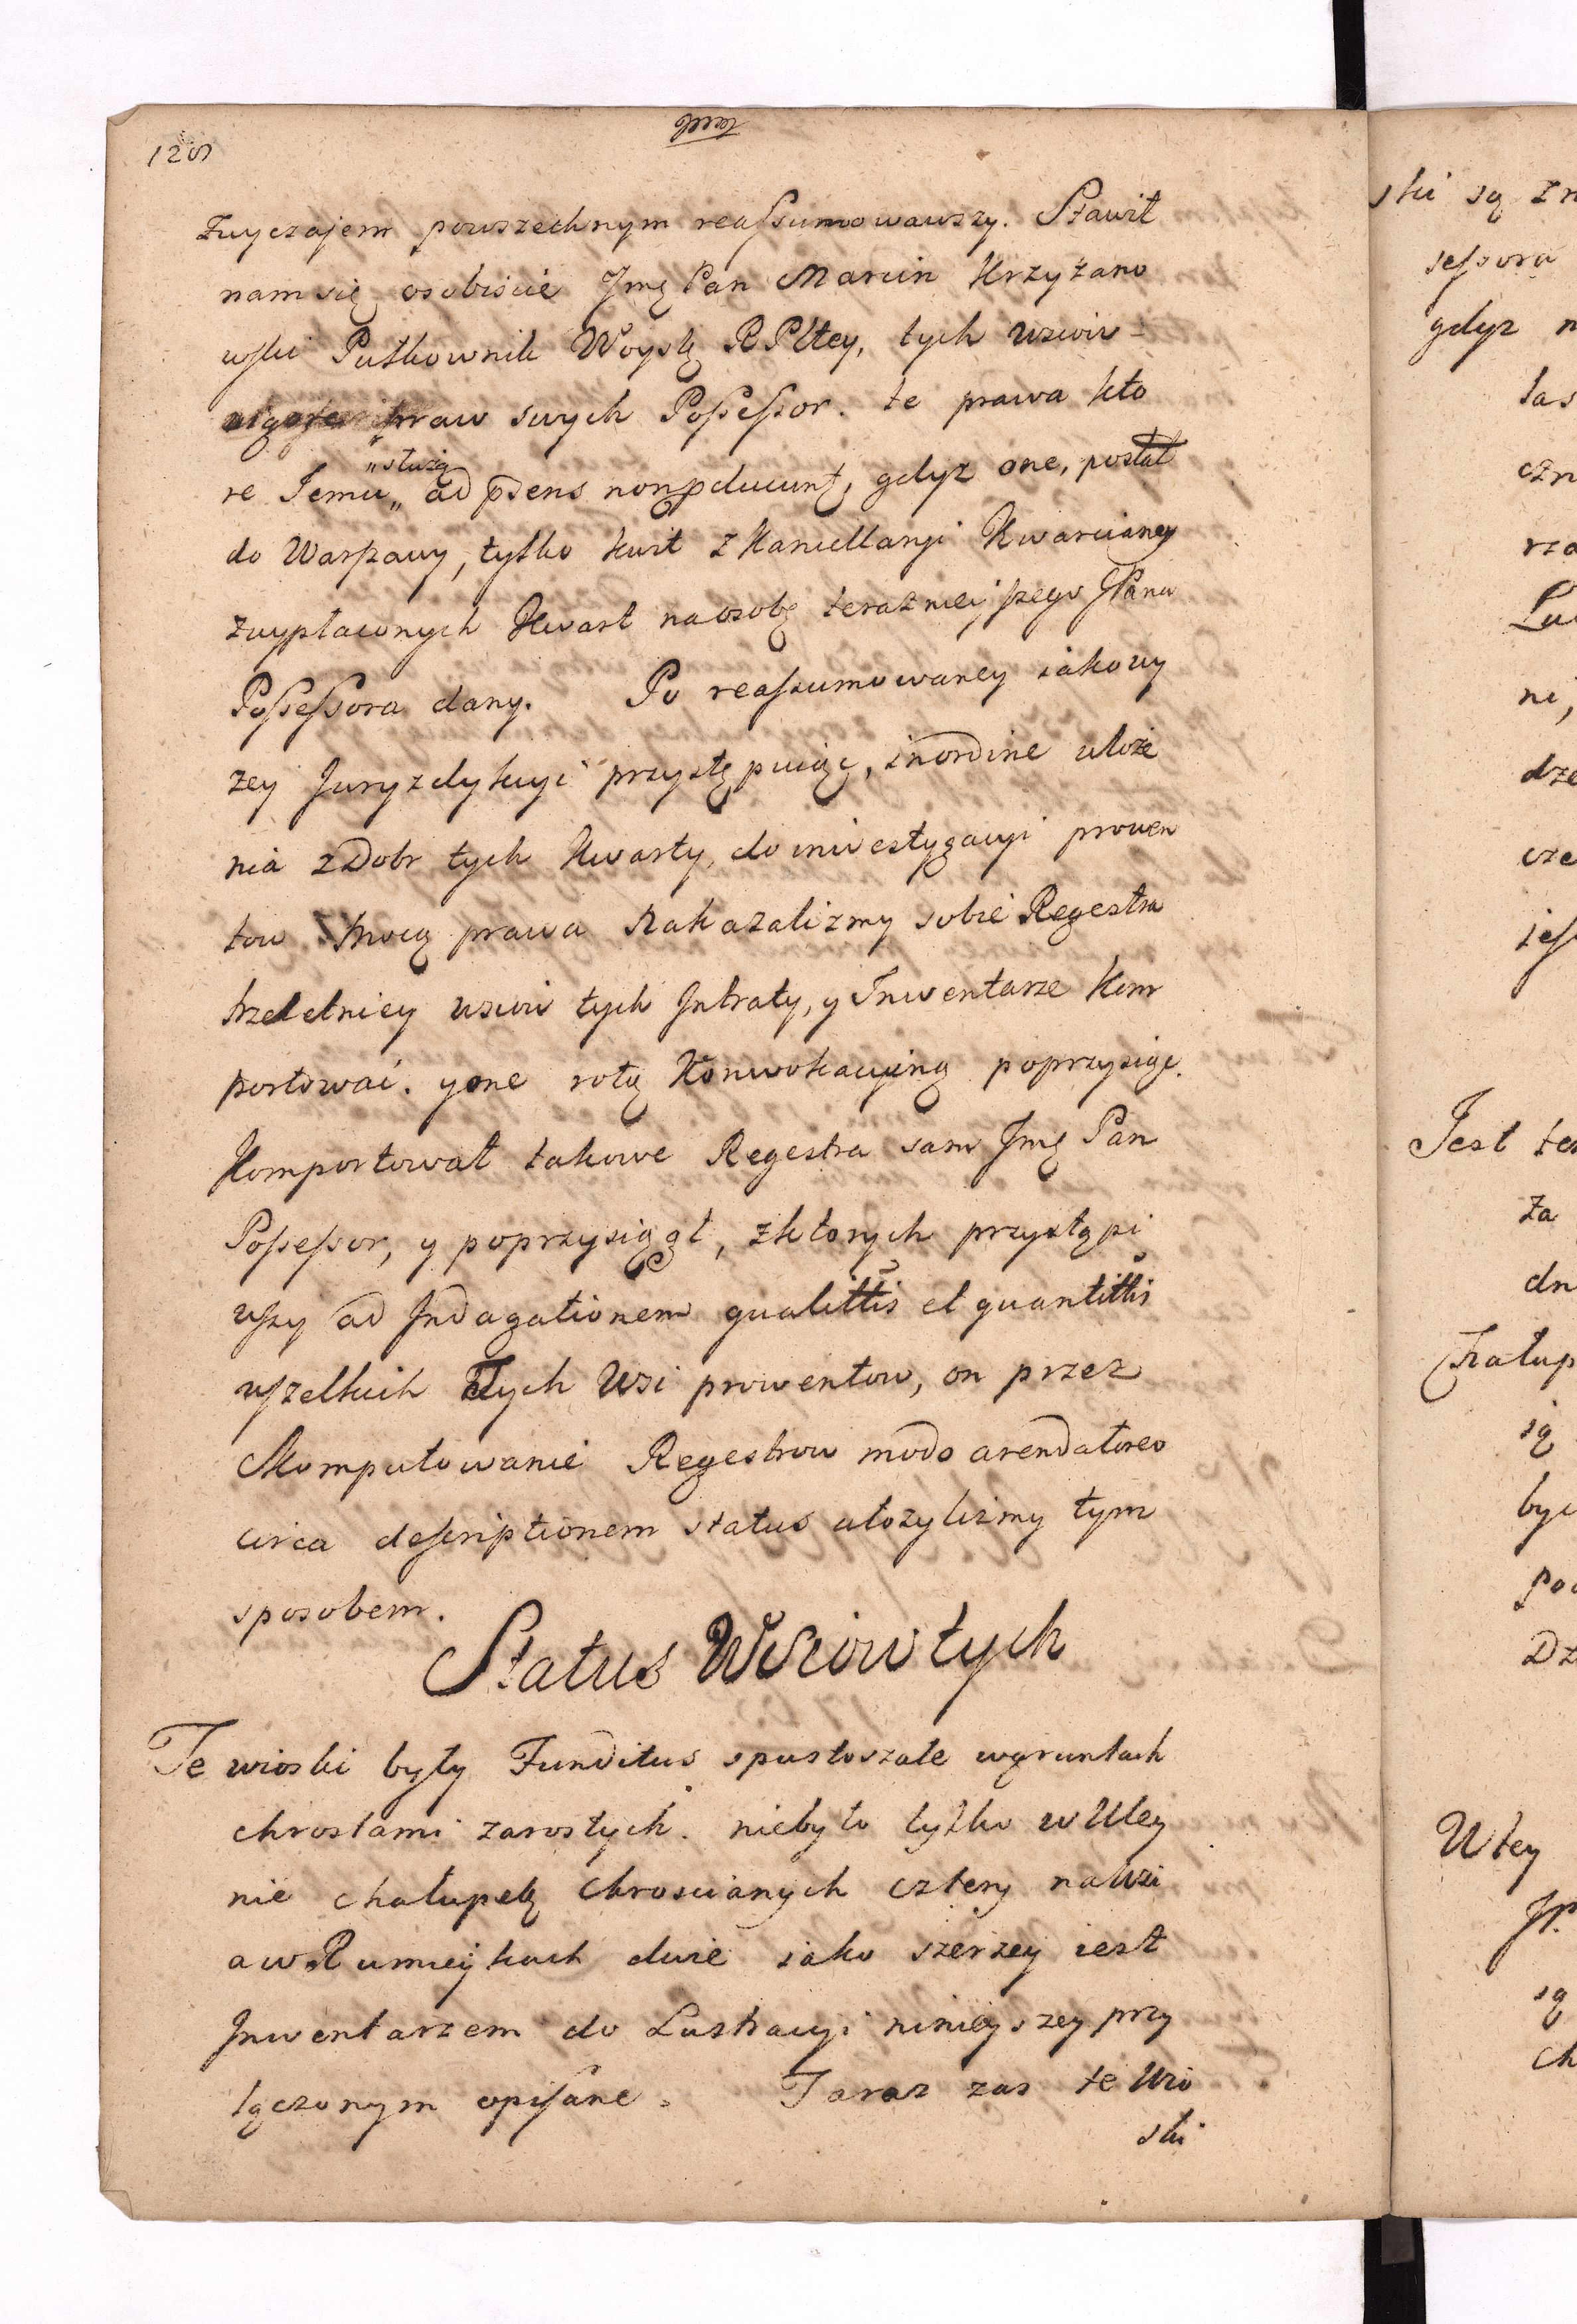 120
zwyczajem powszechnym reassumowawszy. Stawił
nam się osobiscie Jmę Pan Marcin Krzyżano
wski Pułkownik Woyską RPltey, tych wsiow-
praw swych Possessor. te prawa kto
re Jemu „służą„ ad psens non pducunt, gdyz one, posłał
do Warszawy, tylko kwit z Kancellaryi Kwarcianey
zwypłaconych Kwart na osobę teraznieiszego JPana
Possessora dany. Po reassumowaney iakowy
zey Juryzdykcyi przystępuiąc, in ordine ułoże
nia z Dobr tych Kwarty, do inwestygacyi prowen
tow mocą prawa nakazalizmy sobie Regestra
trzeletniey wsiow tych Intraty, y Inwentarze kom
portowac. y one rotą Konwokacyiną poprzysiąc.
Komportował takowe Regestra sam Jmę Pan
Possessor, y poprzysiągł, z ktorych przystąpi
wszy ad Indagationem qualittis et quantittis
wszelkich Tych Wsi prowentow, on przez
Skomputowanie Regestrow modo arendatoreo
circa descriptionem status ułozylismy tym
sposobem.
Status Wsiow tych
Te wioski były Funditus spustoszałe w gruntach
chrostami zarosłych. niebyło tylko w Uley
nie chałupek chroscianych cztery na Wsi
a w Rumieykach dwie iako szerzey iest
Inwentarzem do Lustracyi ninieyszey przy
łączonym opisane. Taraz zas te Wio
ski
ski są
sessora
gdyz
Jest
Za
Chałup
są
byc
Wtey
JP.
są